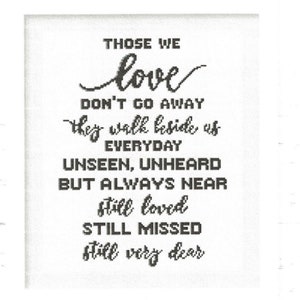 THOSE WE
love
DON'T GO AWAY
they walk beside us
EVERYDAY
UNSEEN, UNHEARD
BUT ALWAYS NEAR
still loved
STILL MISSED
still very dear